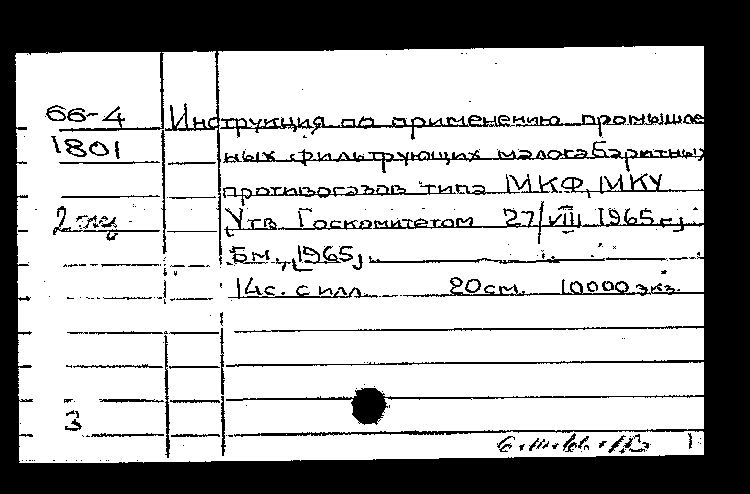 66-4 Инструкция по применению промышле
1801 нных фильтрующих малогабаритных
противогазов типа МКФ, МКУ
2 экз Утв. Госкомитетом 27/VIII 1965 г.
Б.м., 1965.
14с. с илл. 20см. 10000 экз.
3